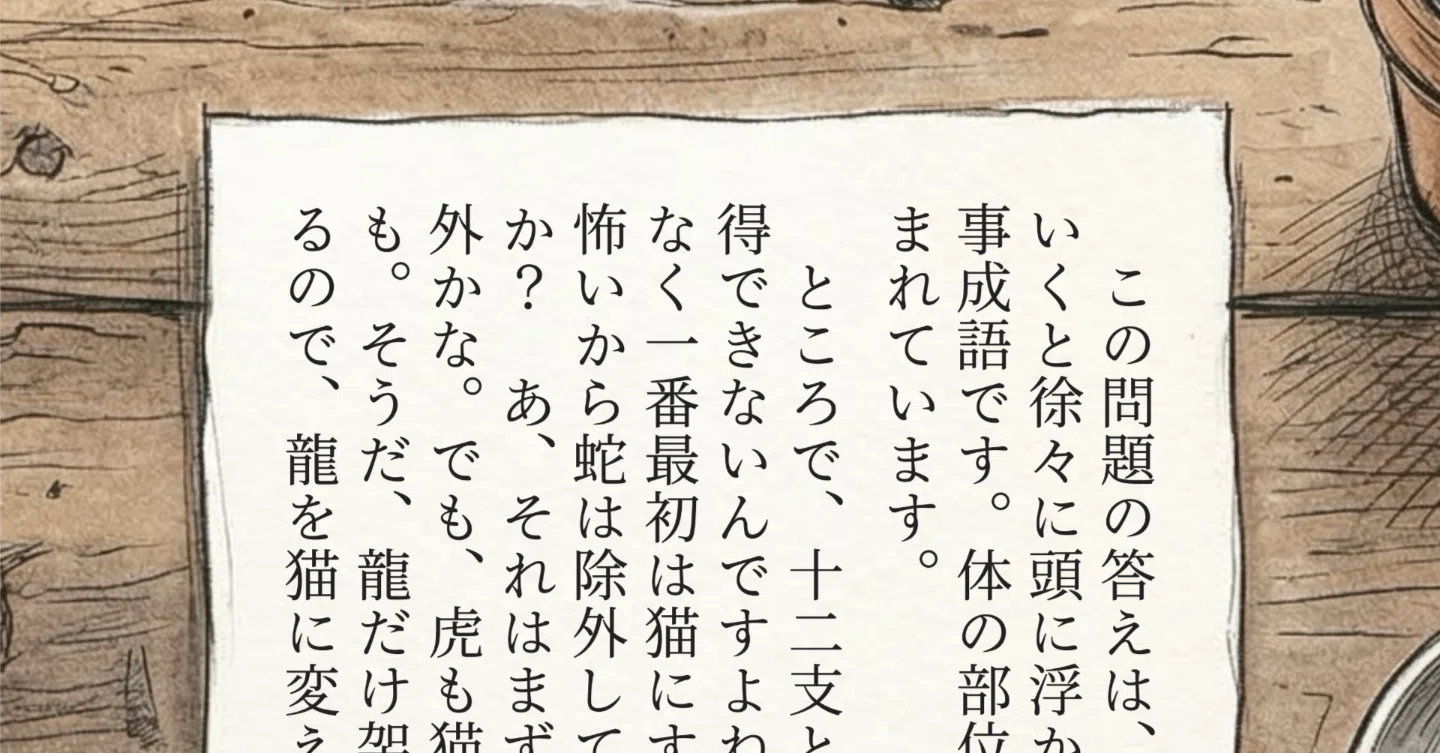 この問題の答えは、
いくと徐々に頭に浮か
事成語です。体の部位
まれています。
ところで、十二支と
得できないんですよね
なく一番最初は猫にす
怖いから蛇は除外して
か？　あ、それはまず
外かな。でも、虎も猫
も。そうだ、龍だけ架
るので、龍を猫に変え